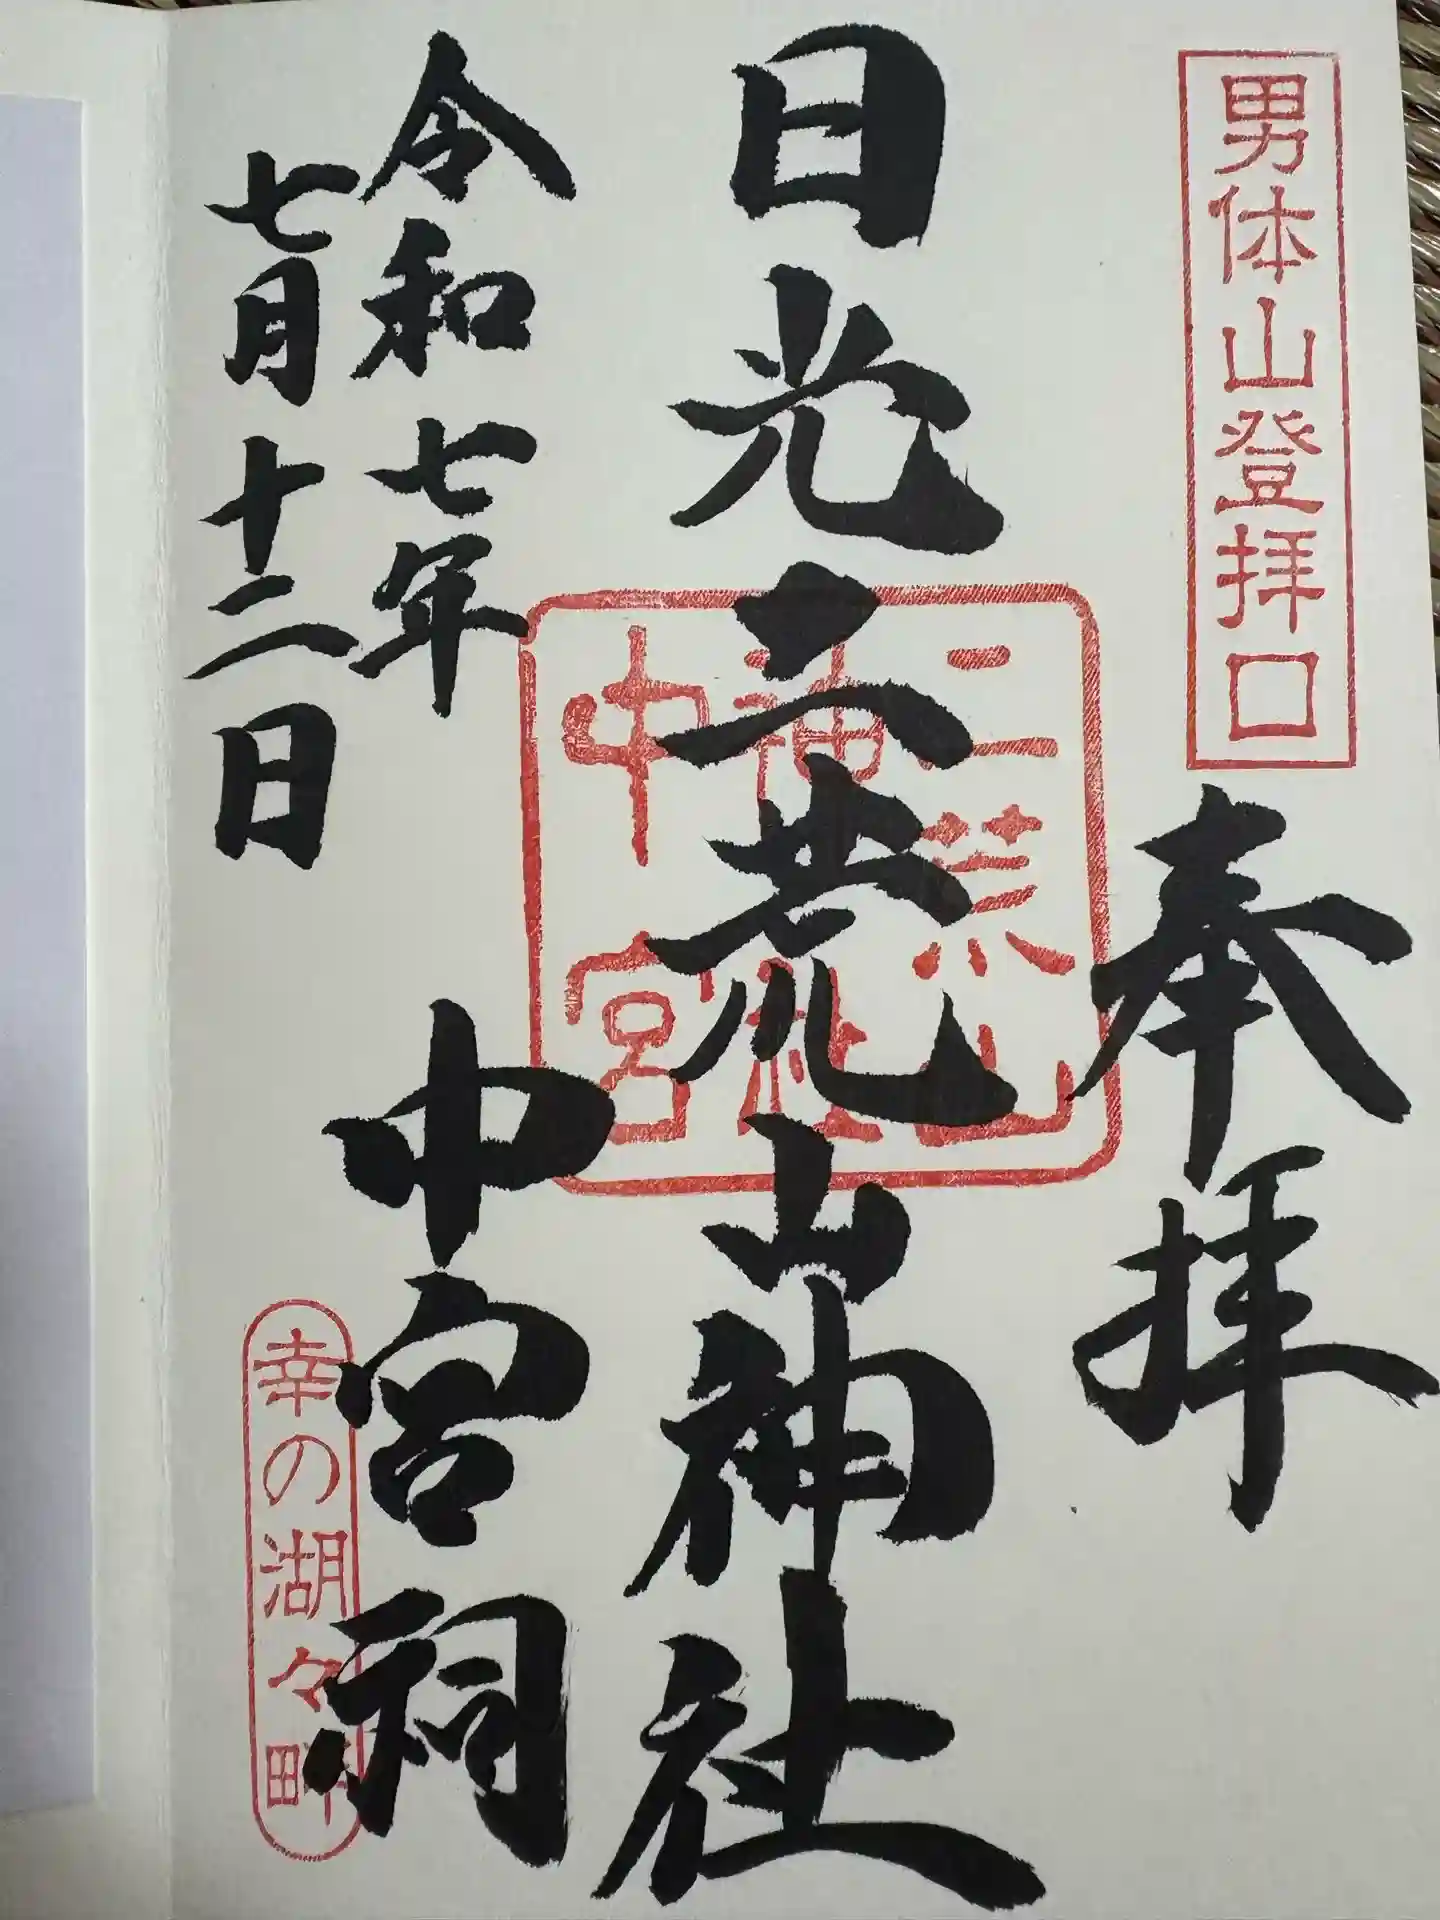 男体山登拝口
奉拝
日光二荒山神社
二荒山
神社
中宮
中宮祠
令和七年
七月十二日
幸の湖々畔